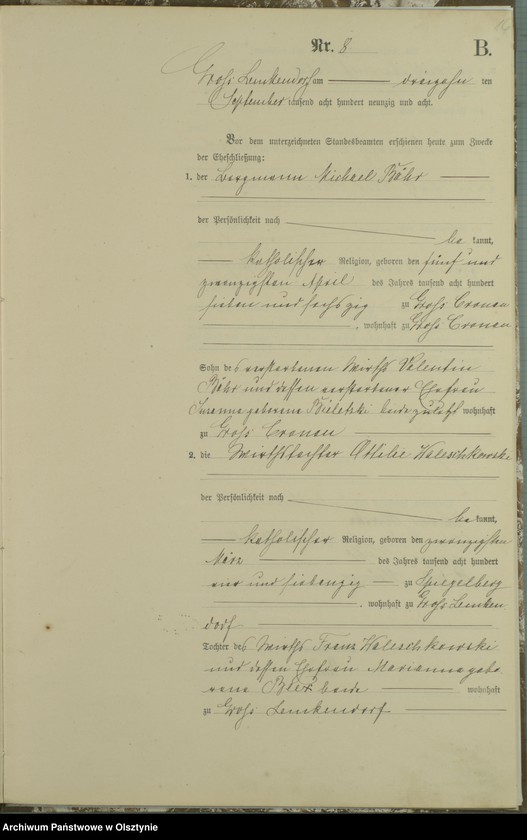 Nr. 8.
B.
Groß Lemkendorf am dreizehn ten
September tausend acht hundert neunzig und acht.
Vor dem unterzeichneten Standesbeamten erschienen heute zum Zwecke
der Eheschließung:
1. der Bergmann Michael Bähr
der Persönlichkeit nach
be kannt,
katholischer Religion, geboren den fünf und
zwanzigsten April des Jahres tausend acht hundert
sieben und sechszig zu Groß Cronau
, wohnhaft zu Groß Cronau
Sohn des verstorbenen Wirths Valentin
Bähr und dessen verstorbener Ehefrau
Susanna geborene Bieletzki beide zuletzt wohnhaft
zu Groß Cronau
2. die Wirthstochter Ottilie Waleschkowski
der Persönlichkeit nach
be kannt,
katholischer Religion, geboren den zwanzigsten
März des Jahres tausend acht hundert
vier und siebenzig zu Spiegelberg
, wohnhaft zu Groß Lemken
dorf
Tochter des Wirths Franz Waleschkowski
und dessen Ehefrau Marianna gebo
rene beide wohnhaft
zu Groß Lemkendorf
Archiwum Państwowe w Olsztynie